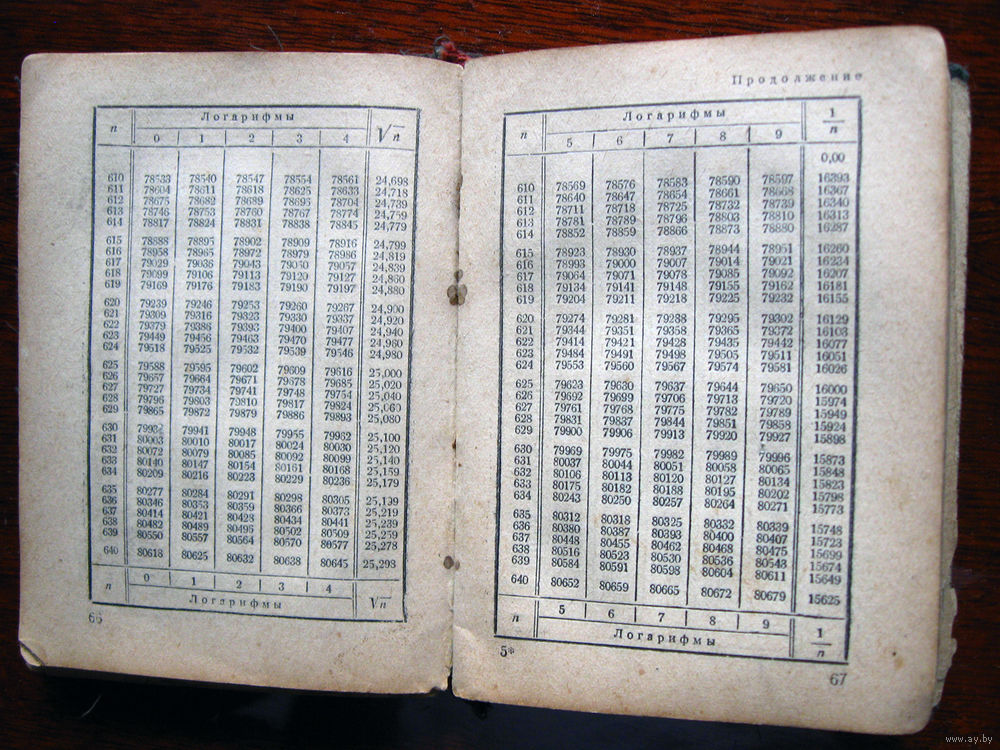 n Логарифмы √n
0 1 2 3 4
610 78533 78540 78547 78554 78561 24,698
611 78604 78611 78618 78625 78633 24,718
612 78675 78682 78689 78695 78704 24,739
613 78746 78753 78760 78767 78774 24,759
614 78817 78824 78831 78838 78845 24,779
615 78888 78895 78902 78909 78916 24,799
616 78958 78965 78972 78979 78986 24,819
617 79029 79036 79043 79050 79057 24,839
618 79099 79106 79113 79120 79127 24,860
619 79169 79176 79183 79190 79197 24,880
620 79239 79246 79253 79260 79267 24,900
621 79309 79316 79323 79330 79337 24,920
622 79379 79386 79393 79400 79407 24,940
623 79449 79456 79463 79470 79477 24,960
624 79518 79525 79532 79539 79546 24,980
625 79588 79595 79602 79609 79616 25,000
626 79657 79664 79671 79678 79685 25,020
627 79727 79734 79741 79748 79754 25,040
628 79796 79803 79810 79817 79824 25,060
629 79865 79872 79879 79886 79893 25,080
630 79934 79941 79948 79955 79962 25,100
631 80003 80010 80017 80024 80030 25,120
632 80072 80079 80085 80092 80099 25,140
633 80140 80147 80154 80161 80168 25,159
634 80209 80216 80223 80229 80236 25,179
635 80277 80284 80291 80298 80305 25,199
636 80346 80353 80359 80366 80373 25,219
637 80414 80421 80428 80434 80441 25,239
638 80482 80489 80496 80502 80509 25,259
639 80550 80557 80564 80570 80577 25,278
640 80618 80625 80632 80638 80645 25,298
n 0 1 2 3 4 √n
Логарифмы
66
Продолжение
n Логарифмы 1/n
5 6 7 8 9
0,00
610 78569 78576 78583 78590 78597 16393
611 78640 78647 78654 78661 78668 16367
612 78711 78718 78725 78732 78739 16340
613 78781 78789 78796 78803 78810 16313
614 78852 78859 78866 78873 78880 16287
615 78923 78930 78937 78944 78951 16260
616 78993 79000 79007 79014 79021 16234
617 79064 79071 79078 79085 79092 16207
618 79134 79141 79148 79155 79162 16181
619 79204 79211 79218 79225 79232 16155
620 79274 79281 79288 79295 79302 16129
621 79344 79351 79358 79365 79372 16103
622 79414 79421 79428 79435 79442 16077
623 79484 79491 79498 79505 79511 16051
624 79553 79560 79567 79574 79581 16026
625 79623 79630 79637 79644 79650 16000
626 79692 79699 79706 79713 79720 15974
627 79761 79768 79775 79782 79789 15949
628 79831 79837 79844 79851 79858 15924
629 79900 79906 79913 79920 79927 15898
630 79969 79975 79982 79989 79996 15873
631 80037 80044 80051 80058 80065 15848
632 80106 80113 80120 80127 80134 15823
633 80175 80182 80188 80195 80202 15798
634 80243 80250 80257 80264 80271 15773
635 80312 80318 80325 80332 80339 15748
636 80380 80387 80393 80400 80407 15723
637 80448 80455 80462 80468 80475 15699
638 80516 80523 80530 80536 80543 15674
639 80584 80591 80598 80604 80611 15649
640 80652 80659 80665 80672 80679 15625
n 5 6 7 8 9 1/n
Логарифмы
5*
67
www.ay.by